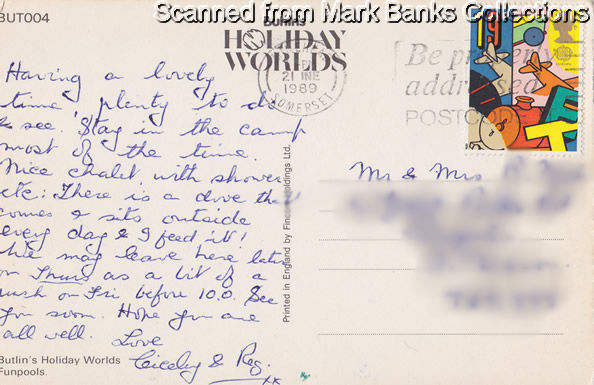 Scanned from Mark Banks Collections
BUT004
Butlins
HOLIDAY
WORLDS
21 JNE
1989
SOMERSET
Be properly
addressed
POSTCODE
19
Having a lovely
time plenty to do
& see. Stay in the camp
most of the time.
Nice chalet with shower
etc: There is a dove that
comes & sits outside
every day & I feed it!
We may leave here later
on Thurs as a bit of a
rush on Fri, before 10.0. See
you soon. Hope you are
all well. Love
Cicely & Reg.
xx
Mr & Mrs
Printed in England by Findon Holdings Ltd.
Butlin's Holiday Worlds
Funpools.